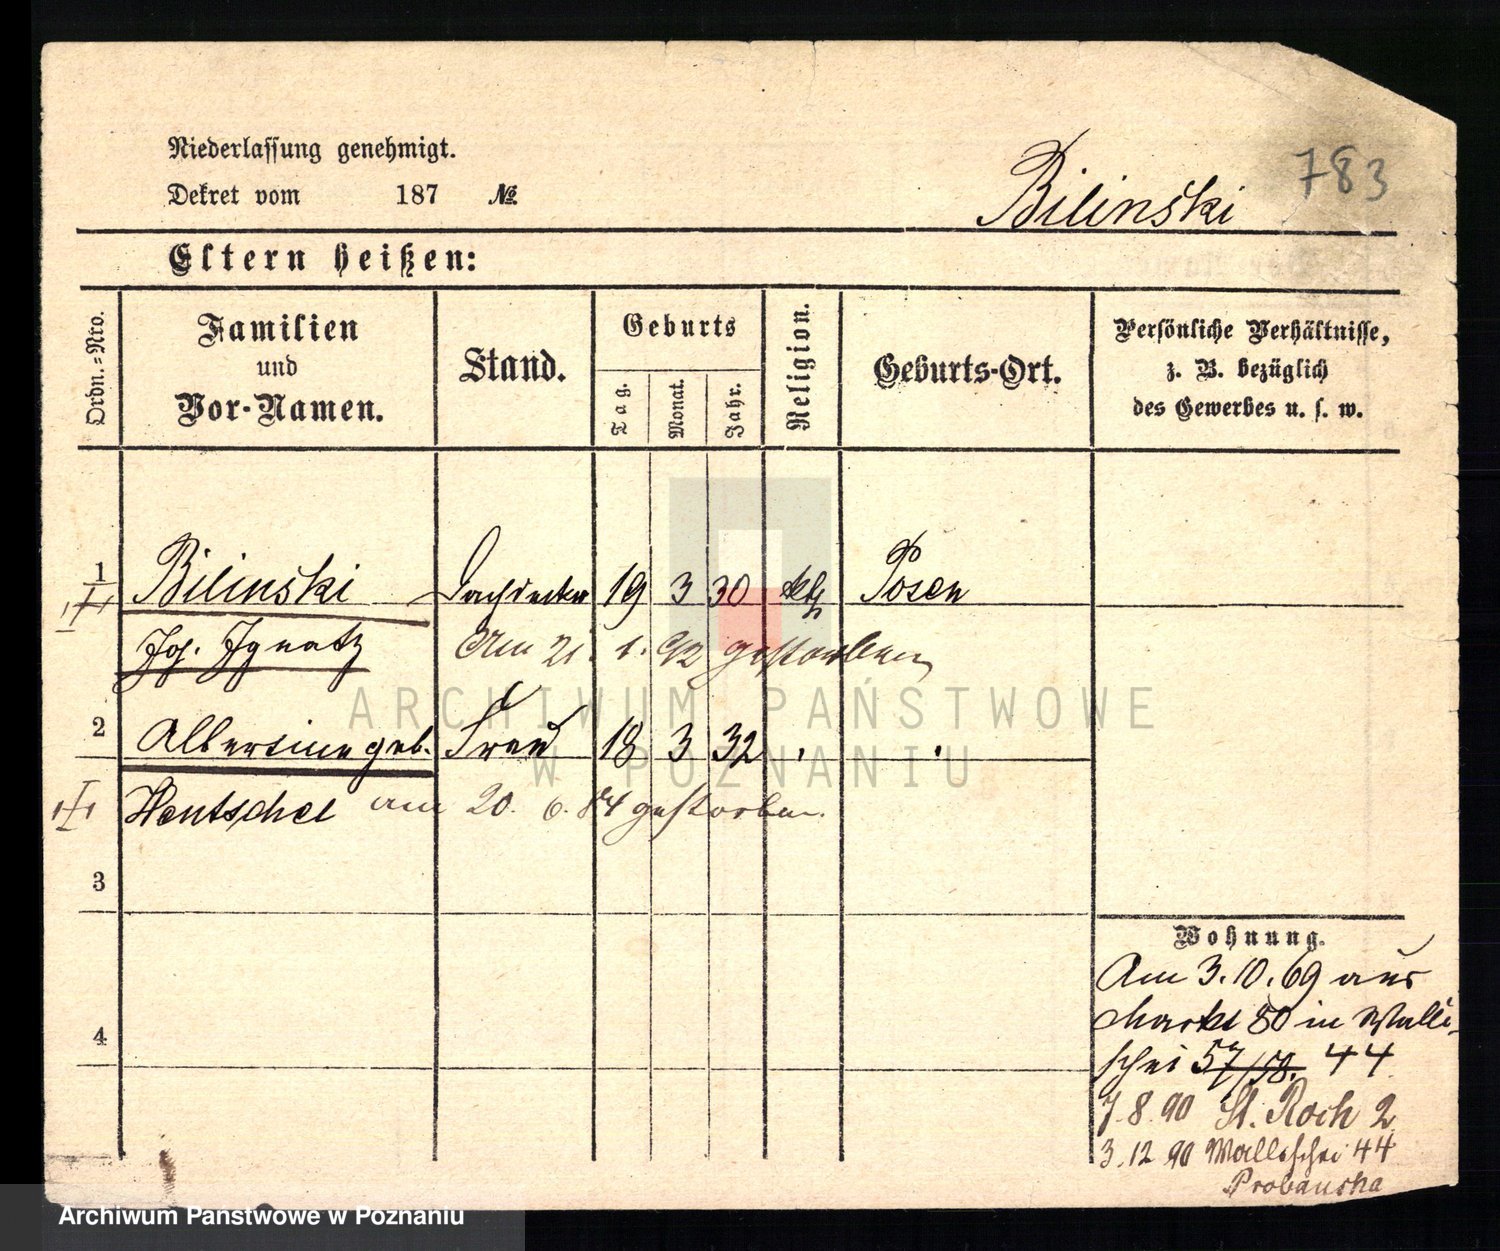 783
Niederlassung genehmigt.
Dekret vom 187 №
Bilinski
Eltern heißen:
Ordn.-Nro.
Familien und Vor-Namen.
Stand.
Geburts
Tag.
Monat.
Jahr.
Religion.
Geburts-Ort.
Persönliche Verhältnisse,
z. B. bezüglich
des Gewerbes u. s. w.
1 Bilinski Dachdecker 19 3 30 kth Posen
Jos. Ignatz Am 21. 1. 92 gestorben
2 Albertine geb. Frau 18 3 32
Hentschel am 20. 6. 84 gestorben.
3
4
Wohnung.
Am 3.10.69 aus
Markt 80 in Walli-
schei 57/58. 44
7.8.90 St. Roch 2
3.12 90 Wallischei 44
ARCHIWUM PAŃSTWOWE
W POZNANIU
Archiwum Państwowe w Poznaniu